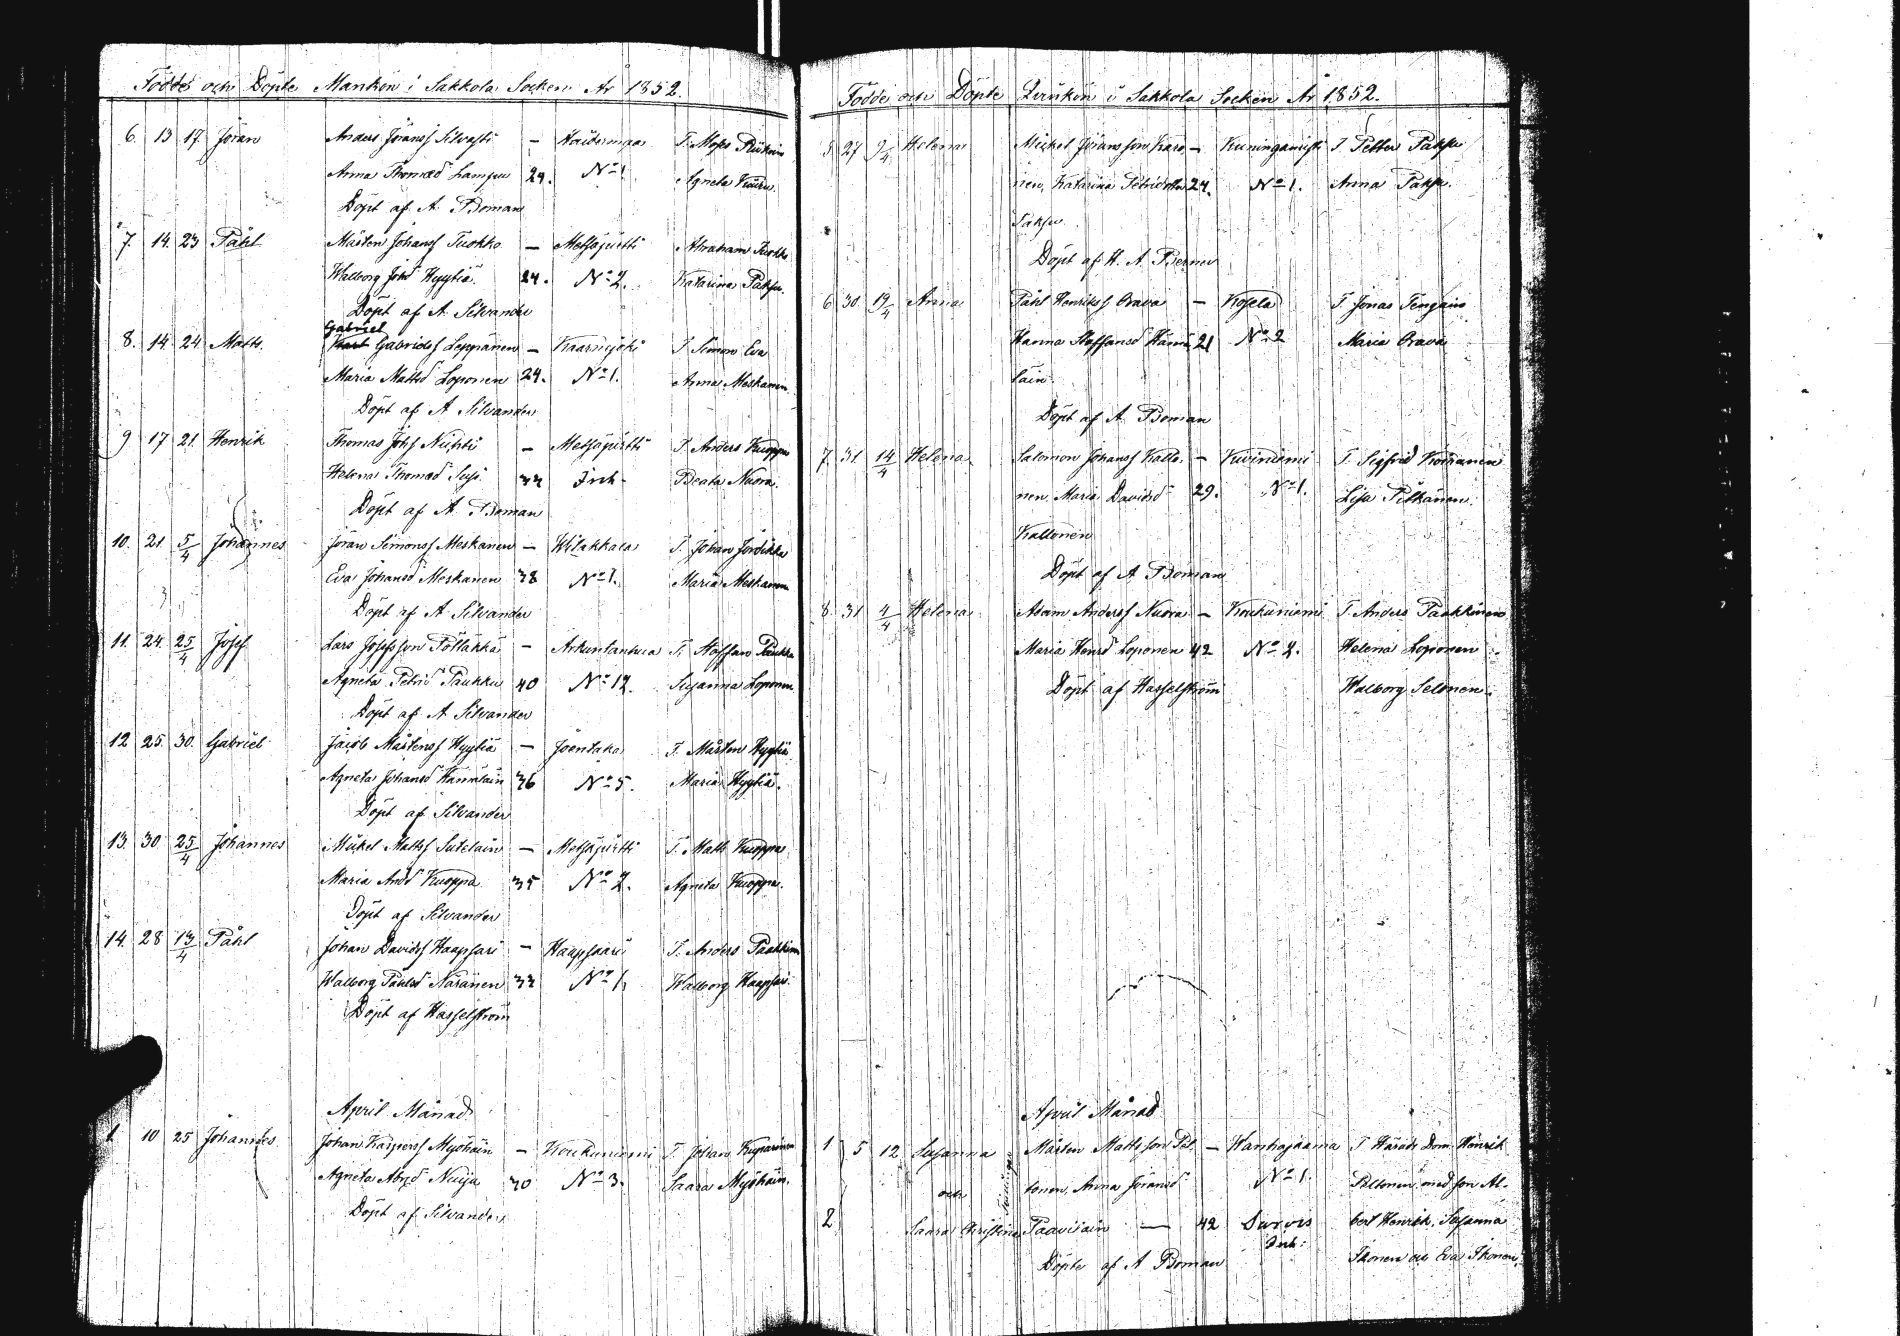 Födde och Döpte Mankön i Sakkola Socken År 1852.
6. 13 17. Jöran Anders Jöranss Silvasti — N:o 1 T. Moses
Anna Thomæd Lampu 29. Agneta
Döpt af A. Boman
7. 14. 23 Påhl Mårten Johanss Tuokko — Metsäpirtti Abraham Tuokko
Walborg Johd Hyytiä 24. N:o 2. Katarina Paksu.
Döpt af A. Silvander
Gabriel
8. 14. 24. Matts. Gabrielss Leppänen — Kaarnajoki T. Simon Eva
Maria Mattsd Loponen 24. N:o 1. Anna Meskanen
Döpt af A Silvander
9 17 21. Henrik Thomas Johss — Metsäpirtti T. Anders Kuoppa
Helena Thomæd Susi 33 Inh. Beata Nuora.
Döpt af A. Boman
10. 21 5/4 Johannes Jöran Simonss Meskanen — Wilakkala T. Johan
Eva Johansd Meskanen 38 N:o 1. Maria Meskanen
Döpt af A. Silvander
11. 24. 25/4 Josef Lars Josefsson Pölläkkä — Arkuntanhua T. Staffan Paukku
Agneta Petrid Paukku 40 N:o 12. Susanna Loponen.
Döpt af A Silvander
12 25. 30. Gabriel Jacob Mårtenss Hyytiä — Joentaka T. Mårten Hyytiä
Agneta Johansd 36 N:o 5. Maria Hyytiä.
Döpt af Silvander
13. 30 25/4 Johannes Mickel Mattss — Metsäpirtti T. Matts Kuoppa
Maria Andd Kuoppa 35 N:o 2. Agneta Kuoppa.
Döpt af Silvander
14. 28 13/4 Påhl Johan Davidss Haapsari — Haapsaari T. Anders Paakkinen
Walborg Påhlsd Näränen 33 N:o 1. Walborg Haapsari
Döpt af Hasselström
April Månad
1. 10 25 Johannes Johan Kaspers Myöhäin — Koukuniemi T. Johan Kuparinen
Agneta Abrd Nuija 30 N:o 3. Saara Myöhäin.
Döpt af Silvander
Födde och Döpte Qvinkön i Sakkola Socken År 1852.
5. 27 9/4 Helena Mickel Jöransson Karo — T. Petter Paksu
nen, Katarina Petridotter 24. N:o 1. Anna Paksu.
Paksu
Döpt af H. A. Berner
6 30. 19/4 Anna Påhl Henrikss Orava — Kosela T. Jonas
Hanna Staffansd Hämä 21 N:o 2 Maria Orava
läin
Döpt af A. Boman
7. 31. 14/4 Helena Salomon Johanss Kallo — Kiviniemi T. Sigfrid Koiranen
nen, Maria Davidsd 29. N:o 1. Lisa Pitkänen.
Kallonen
Döpt af A Boman
8. 31 4/4 Helena Adam Anderss Nuora — Koukuniemi T. Anders Paakkinen
Maria Henrd Loponen 42 N:o 2. Helena Loponen
Döpt af Hasselström Walborg Selonen.
April Månad
1 5 12 Susanna Mårten Mattsson Pel — Wanhajaama T Härads Dom. Henrik
och Tvillingar tonen, Anna Jöransd N:o 1. Peltonen, med son Al-
2 Saara Christina Paavilain — 42 bert Henrik, Susanna
Inh:
Döpte af A Boman Ikonen och Eva Ikonen.